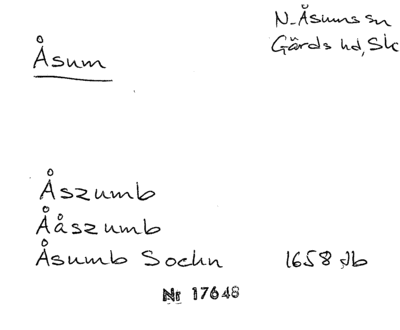 Åsum
N. Åsums sn
Gärds hd, Sk
Åszumb
Ååszumb
Åsumb Sochn 1658 Jb
Nr 17648